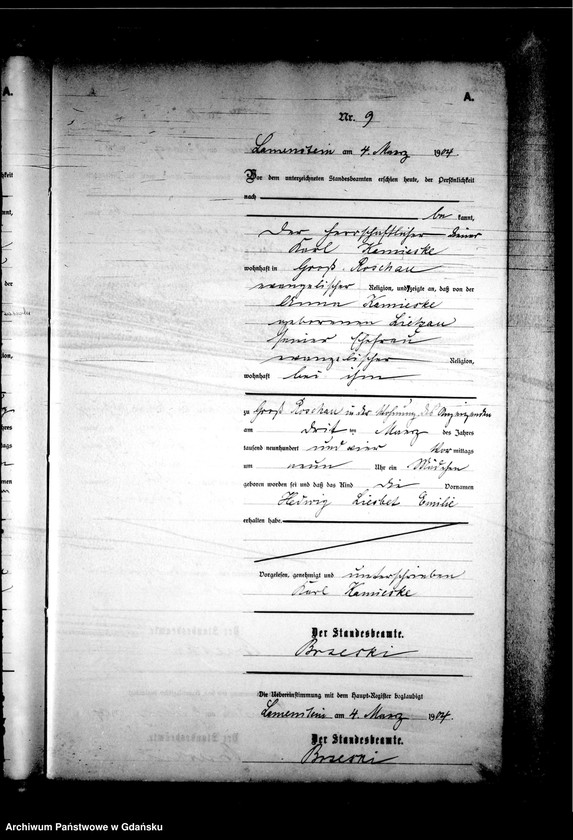 A.
A.
Nr. 9
Lamenstein am 4. März 1904.
Vor dem unterzeichneten Standesbeamten erschien heute, der Persönlichkeit
nach
be kannt,
der herrschaftlicher Diener
Karl Kamieske
wohnhaft in Groß Roschau
evangelischer Religion, und zeigte an, daß von der
Kamieske
geborenen Lietzau
seiner Ehefrau
evangelischer Religion,
wohnhaft bei ihm
zu Groß Roschau in der Wohnung des Anzeigenden
am dritten März des Jahres
tausend neunhundert und vier Vor mittags
um neun Uhr ein Mädchen
geboren worden sei und daß das Kind die Vornamen
Hedwig Liesbet Emilie
erhalten habe.
Vorgelesen, genehmigt und unterschrieben
Karl Kamieske
Der Standesbeamte.
Brzeski
Die Uebereinstimmung mit dem Haupt-Register beglaubigt
Lamenstein am 4. März 1904.
Der Standesbeamte.
Brzeski
Archiwum Państwowe w Gdańsku